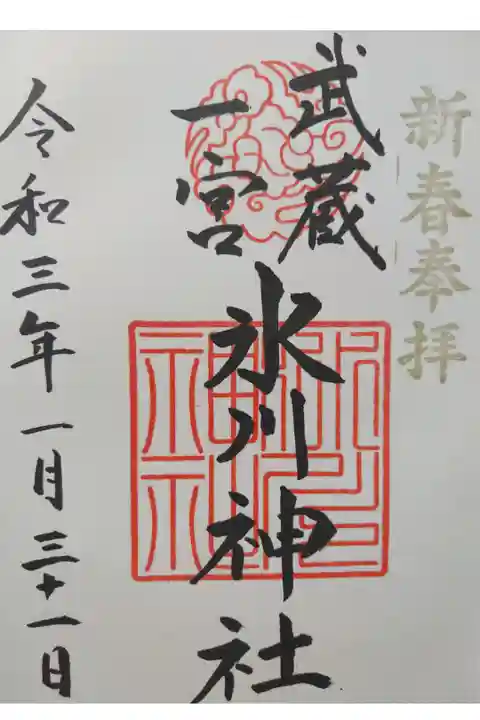 新春奉拝
武蔵
一宮
氷川神社
令和三年一月三十一日